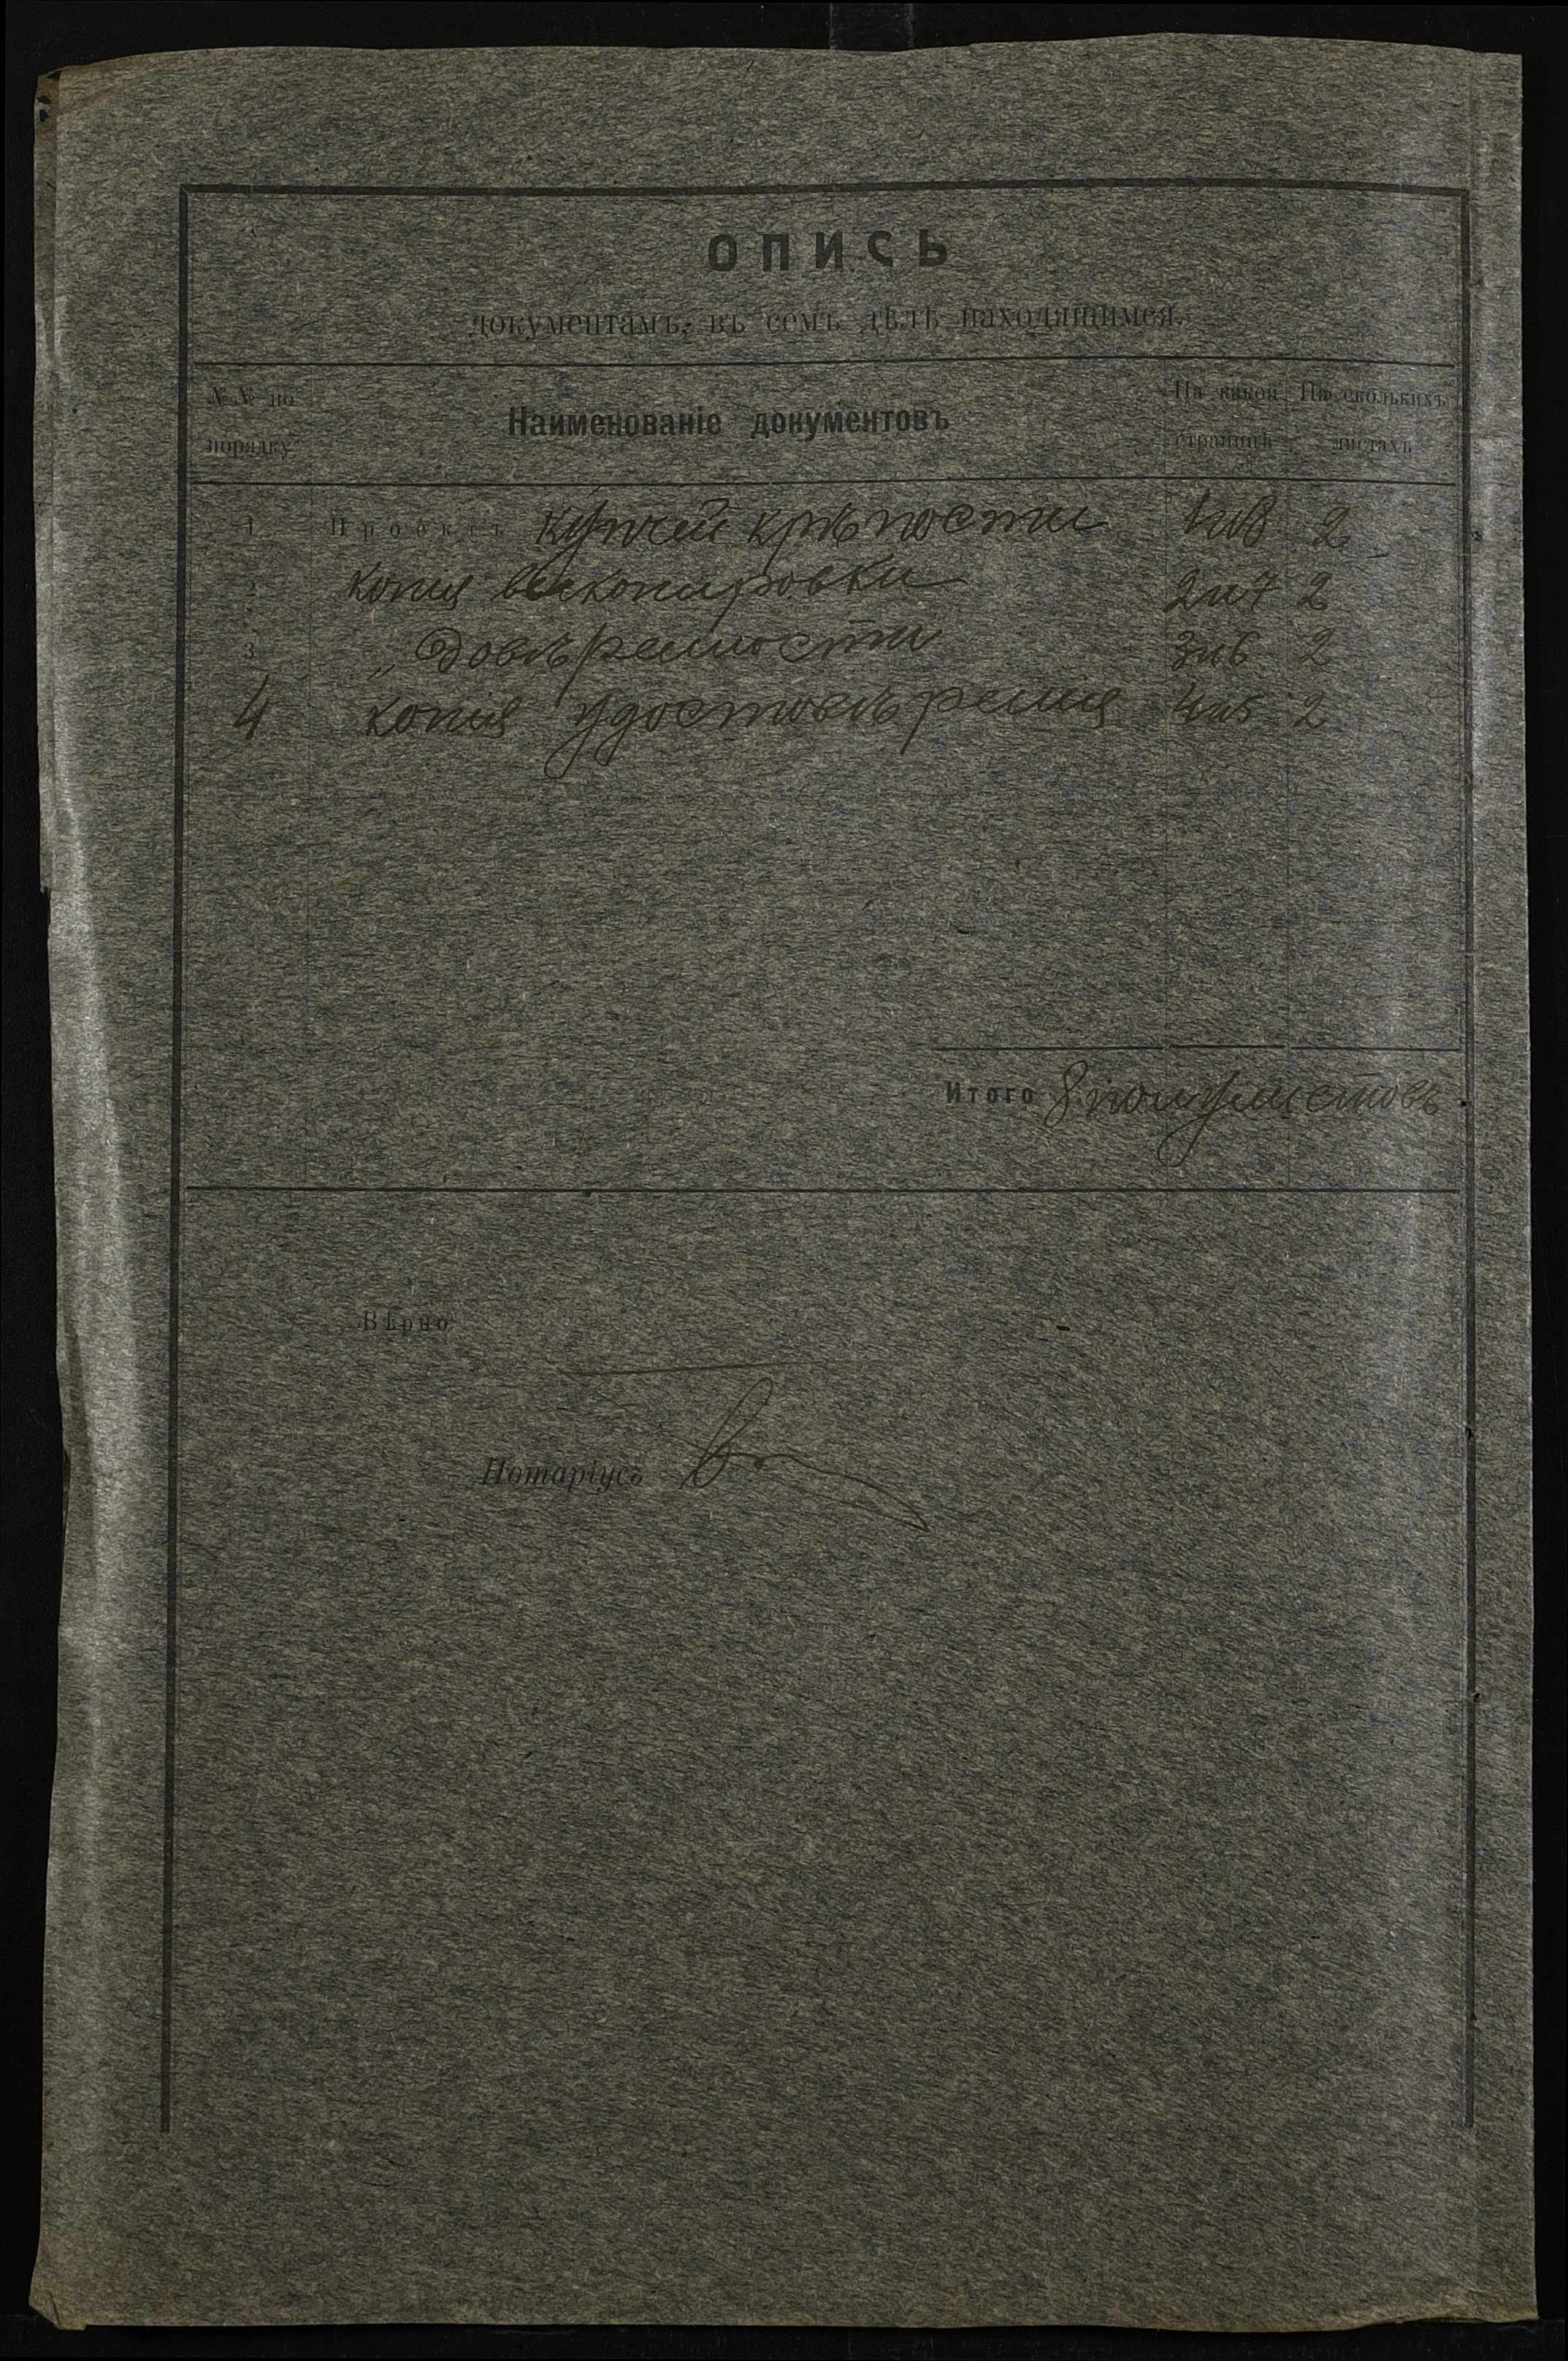 ОПИСЬ
документамъ, въ семъ дѣлѣ находящимся.
№№ по порядку
Наименованіе документовъ
На какой страницѣ
На сколькихъ листахъ
1 Проектъ купчей крѣпости 1 и 8 2
2 Копія выкопировки 2 и 7 2
3 „ довѣренности 3 и 6 2
4 Копія удостовѣренія 4 и 5 2
Итого 8 полулистовъ
Вѣрно
Нотаріусъ